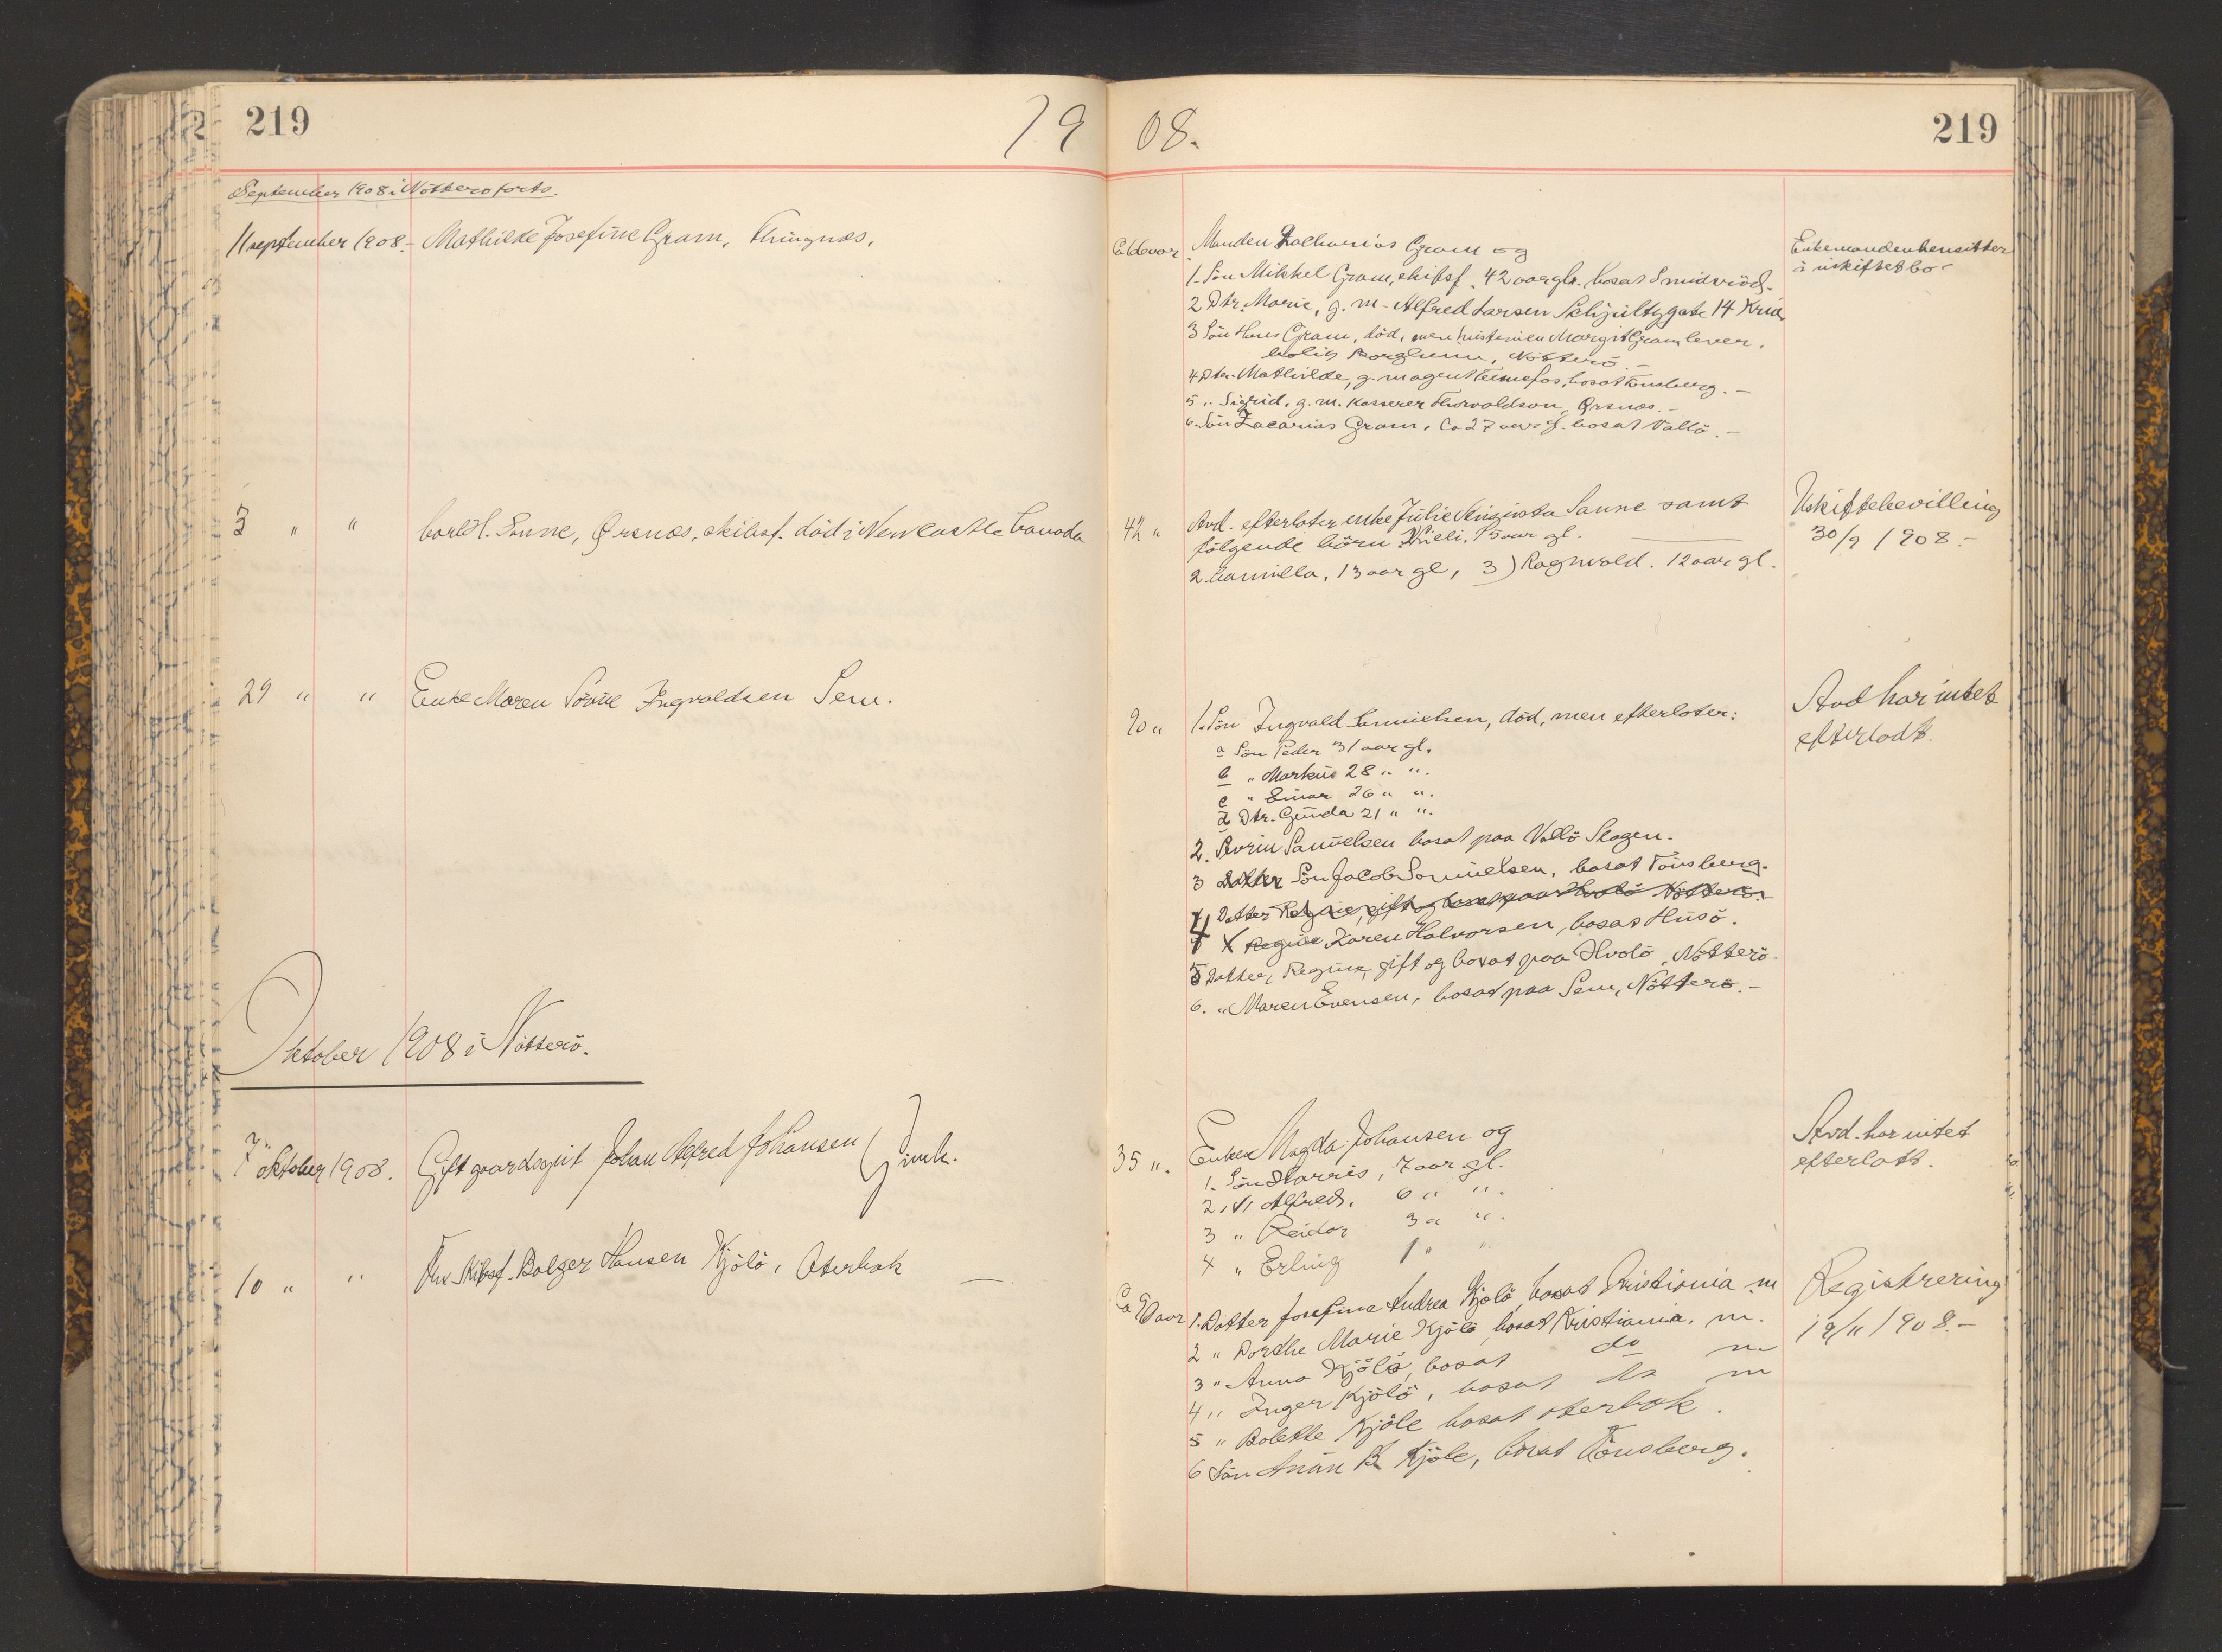 219
19 08.
219
September 1908 i Nötterö forts.
11 september 1908. - Mathilde Josefine Gram,
Ca 66 aar
Manden Zacharias Gram og
1. Sön Mikkel Gram, skibsf. 42 aar gl. bosat Smidsröd.
2 Dtr. Marie, g. m. Alfred Larsen Schjultzgate 14 Kria
3 Sön Hans Gram, död, men Margit Gram lever,
bolig Nötterö. -
4 Dtr. Mathilde, g. m agent bosat Tönsberg. -
5 " Sigrid, g. m. kasserer Thorvaldson, Ørsnæs. -
6. Sön Zacarias Gram, Ca 27 aar gl. bosat Vallö. -
Enkemanden hensitter
i uskiftet bo -
3 " " Carl H. Sanne, Ørsnæs, skibsf. död i Newcastle Canada
42 "
Avd. efterlater enke Julie Augusta Sanne samt
fölgende börn: 15 aar gl.
2. Camilla, 13 aar gl, 3) Ragnvald. 12 aar gl.
Uskiftebevilling
30/9 1908. -
29 " " Enke Maren Ingvaldsen Sem.
90 "
1. Sön Ingvald Samuelsen, död, men efterlater:
a Sön Peder 31 aar gl.
b " Markus 28 " ".
c " Einar 26 " ".
d Dtr. Gunda 21 " ".
2. Severin Samuelsen bosat paa Vallö Slagen.
3 Datter Sön Jacob Samuelsen, bosat Tönsberg.
4 Datter Regine, gift og bosat paa Hvalö Nötterö.
4 Regine Karen Halvorsen, bosat Husö.
5 Datter, Regine, gift og bosat paa Hvalö, Nötterö.
6. " Maren Evensen, bosat paa Sem, Nötterö. -
Avd har intet
efterladt.
Oktober 1908 i Nötterö.
7 oktober 1908. Gift gaardsgut Johan Alfred Johansen
35 ".
Enken Magda Johansen og
1. Sön Harris, 7 aar gl.
2. " Alfred, 6 " ".
3 " Reidar 3 " ".
4 " Erling 1 " "
Avd. har intet
efterladt.
10 " " Fhv. Skibsf. Bolger Hansen Kjölö, Oterbæk —
1. Datter Josefine Andrea Kjölö, bosat Kristiania m
2 " Dorthe Marie Kjölö bosat Kristiania. m.
3 " Anna Kjölö, bosat do m
4 " Inger Kjölö, bosat do m
5 " Bolette Kjöle bosat oterbæk.
6 Sön Anton B. Kjöle, bosat Tönsberg.
Registrering
19/11 1908. -